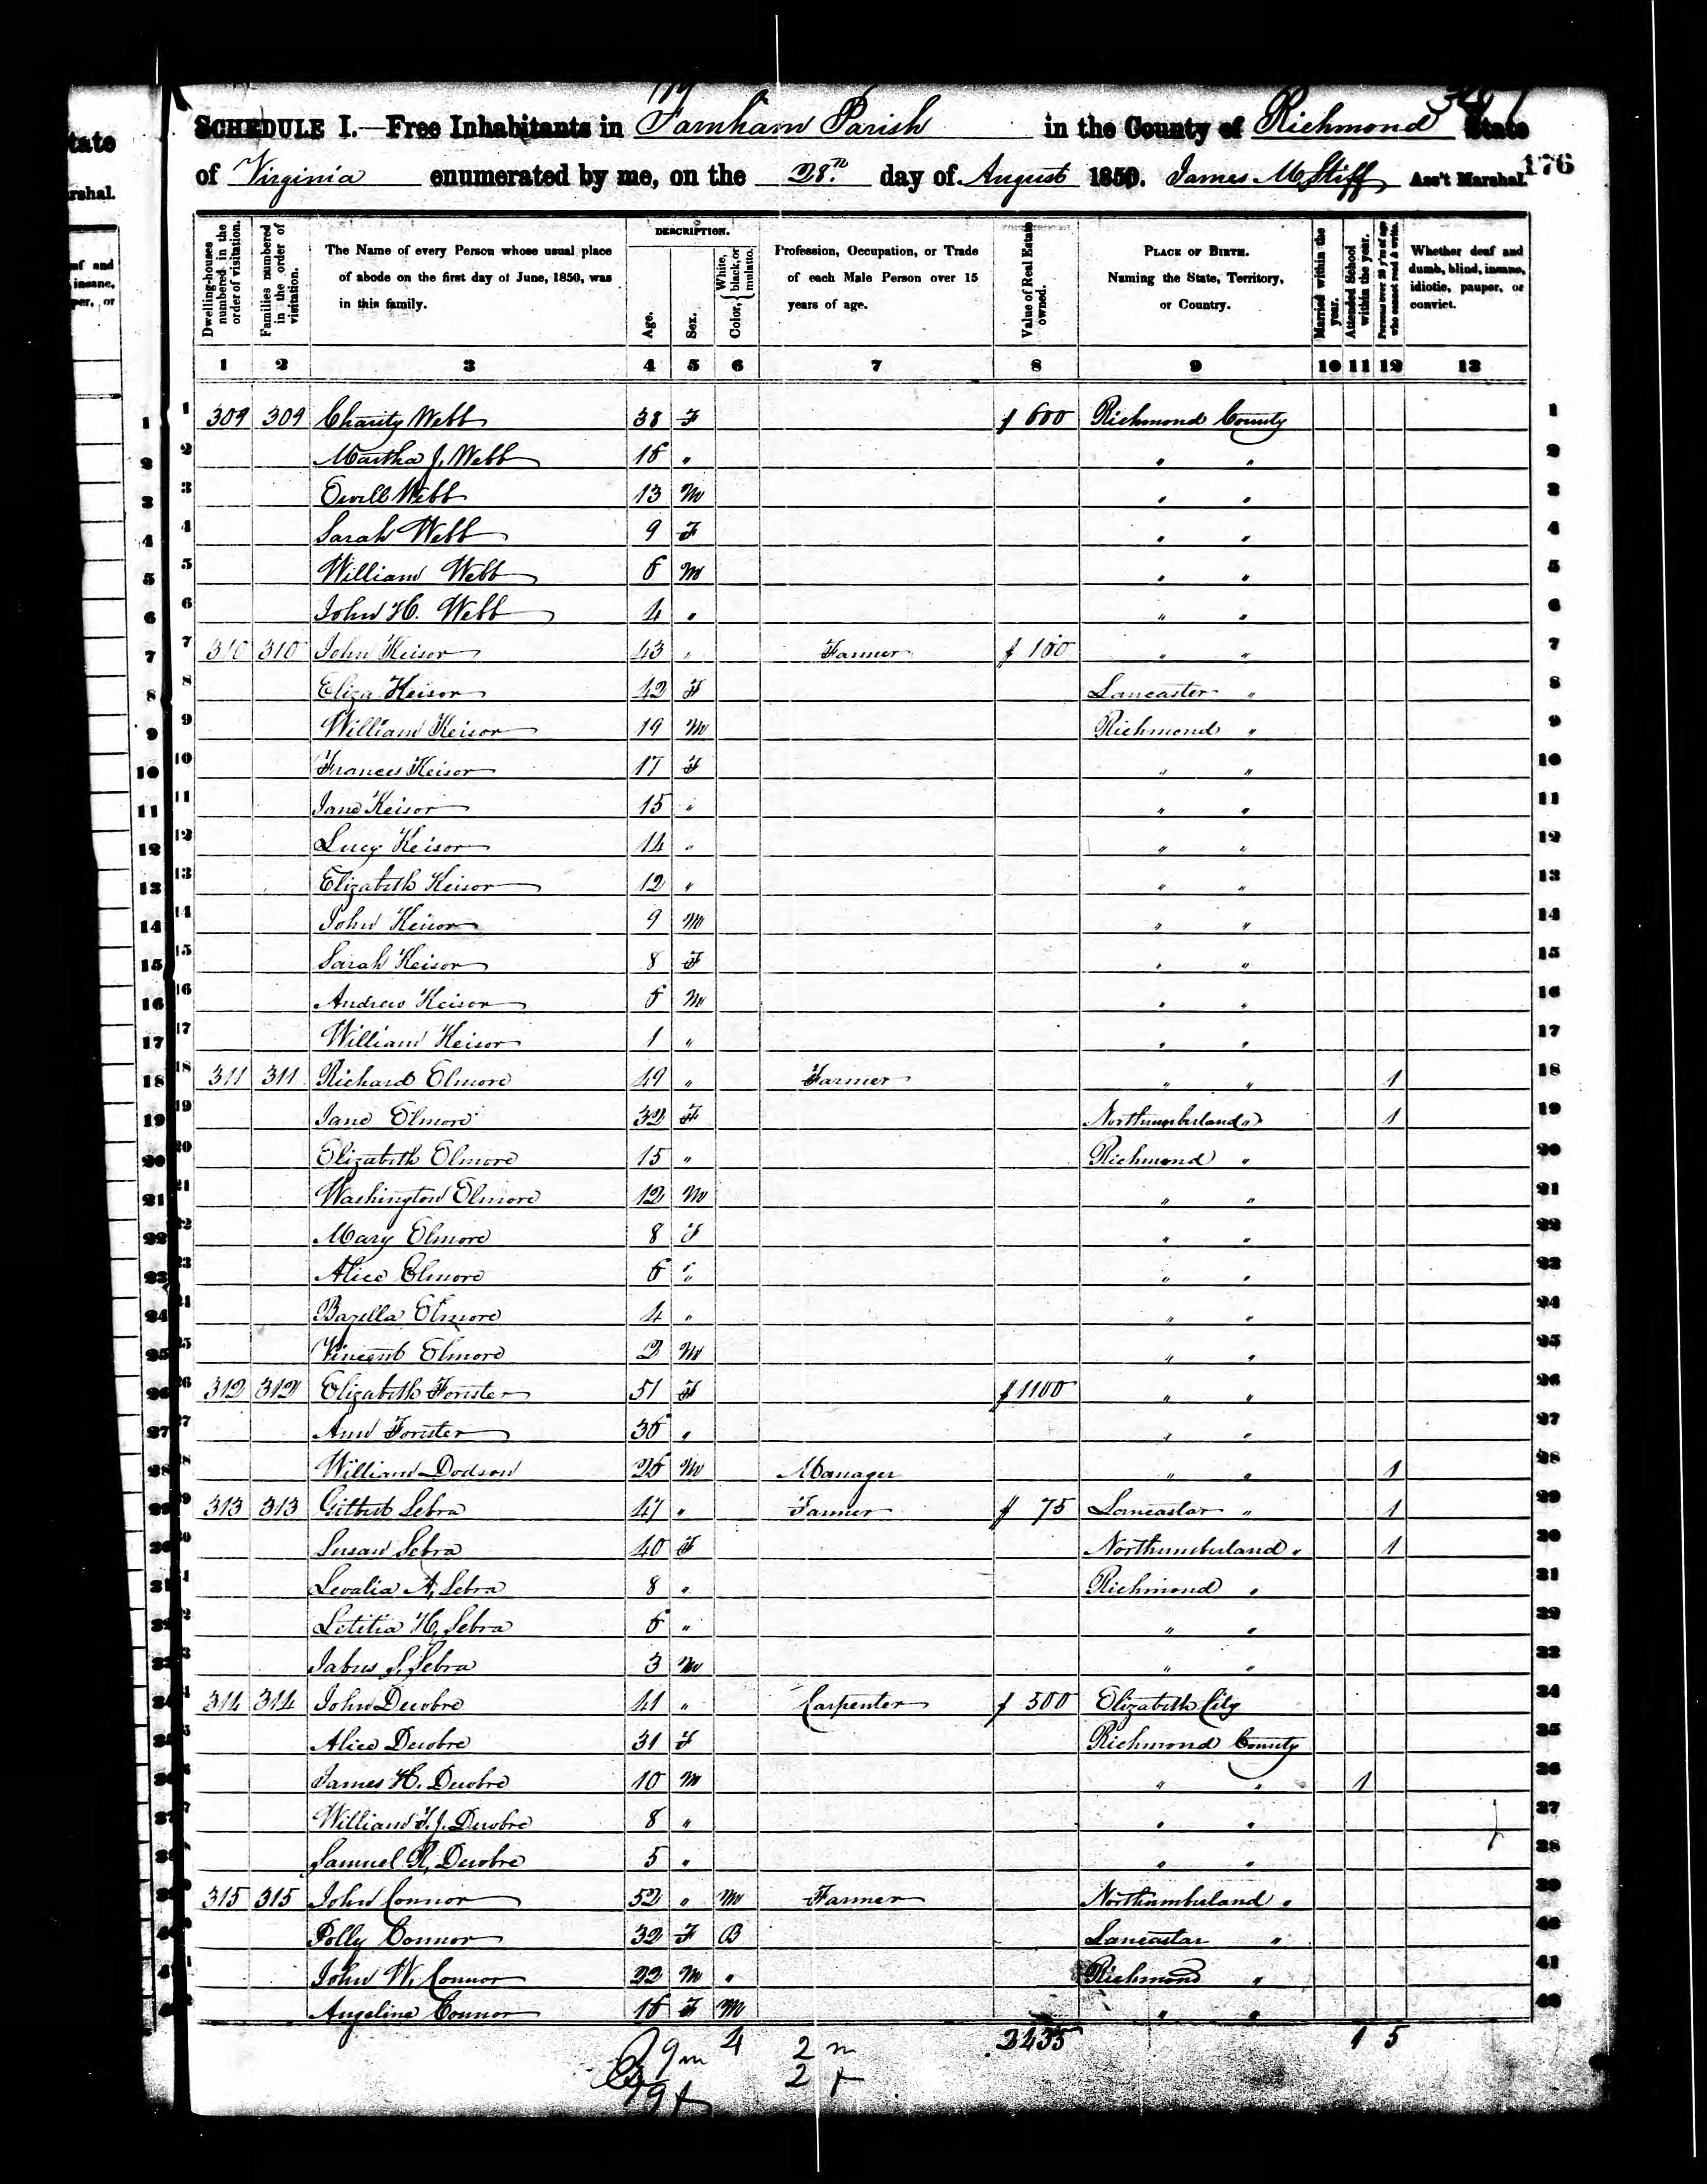 SCHEDULE I.—Free Inhabitants in Farnham Parish in the County of Richmond State
of Virginia enumerated by me, on the 28th day of August 1850. James M Stiff Ass't Marshal.
176
Dwelling-houses numbered in the order of visitation.
Families numbered in the order of visitation.
The Name of every Person whose usual place of abode on the first day of June, 1850, was in this family.
DESCRIPTION.
Age.
Sex.
Color, { White, black, or mulatto.
Profession, Occupation, or Trade of each Male Person over 15 years of age.
Value of Real Estate owned.
PLACE OF BIRTH. Naming the State, Territory, or Country.
Married within the year.
Attended School within the year.
Persons over 20 y'rs of age who cannot read & write.
Whether deaf and dumb, blind, insane, idiotic, pauper, or convict.
1 2 3 4 5 6 7 8 9 10 11 12 13
1 309 309 Charity Webb 38 F $ 600 Richmond County 1
2 Martha J. Webb 16 " " " 2
3 Ewell Webb 13 M " " 3
4 Sarah Webb 9 F " " 4
5 William Webb 6 M " " 5
6 John H. Webb 4 " " " 6
7 310 310 John Keisor 43 " Farmer $ 100 " " 7
8 Eliza Keisor 42 F Lancaster " 8
9 William Keisor 19 M Richmond " 9
10 Frances Keisor 17 F " " 10
11 Jane Keisor 15 " " " 11
12 Lucy Keisor 14 " " " 12
13 Elizabeth Keisor 12 " " " 13
14 John Keisor 9 M " " 14
15 Sarah Keisor 8 F " " 15
16 Andrew Keisor 6 M " " 16
17 William Keisor 1 " " " 17
18 311 311 Richard Elmore 49 " Farmer " " 1 18
19 Jane Elmore 32 F Northumberland " 1 19
20 Elizabeth Elmore 15 " Richmond " 20
21 Washington Elmore 12 M " " 21
22 Mary Elmore 8 F " " 22
23 Alice Elmore 6 " " " 23
24 Bazella Elmore 4 " " " 24
25 Vincent Elmore 2 M " " 25
26 312 312 Elizabeth Forister 51 F $ 1100 " " 26
27 Ann Forister 36 " " " 27
28 William Dodson 26 M Manager " " 1 28
29 313 313 Gilbert Sebra 47 " Farmer $ 75 Lancaster " 1 29
30 Susan Sebra 40 F Northumberland " 1 30
31 Levalia A. Sebra 8 " Richmond " 31
32 Letitia H. Sebra 6 " " " 32
33 Jabus S. Sebra 3 M " " 33
34 314 314 John Dewbre 41 " Carpenter $ 500 Elizabeth City 34
35 Alice Dewbre 31 F Richmond County 35
36 James H. Dewbre 10 M " " 1 36
37 William T. J. Dewbre 8 " " " 37
38 Samuel R. Dewbre 5 " " " 38
39 315 315 John Connor 52 " M Farmer Northumberland " 39
40 Polly Connor 32 F B Lancaster " 40
41 John W. Connor 22 M " Richmond " 41
42 Angeline Connor 16 F M " " 42
4 2 m 2435 1 5
19 m
19 f 2 f